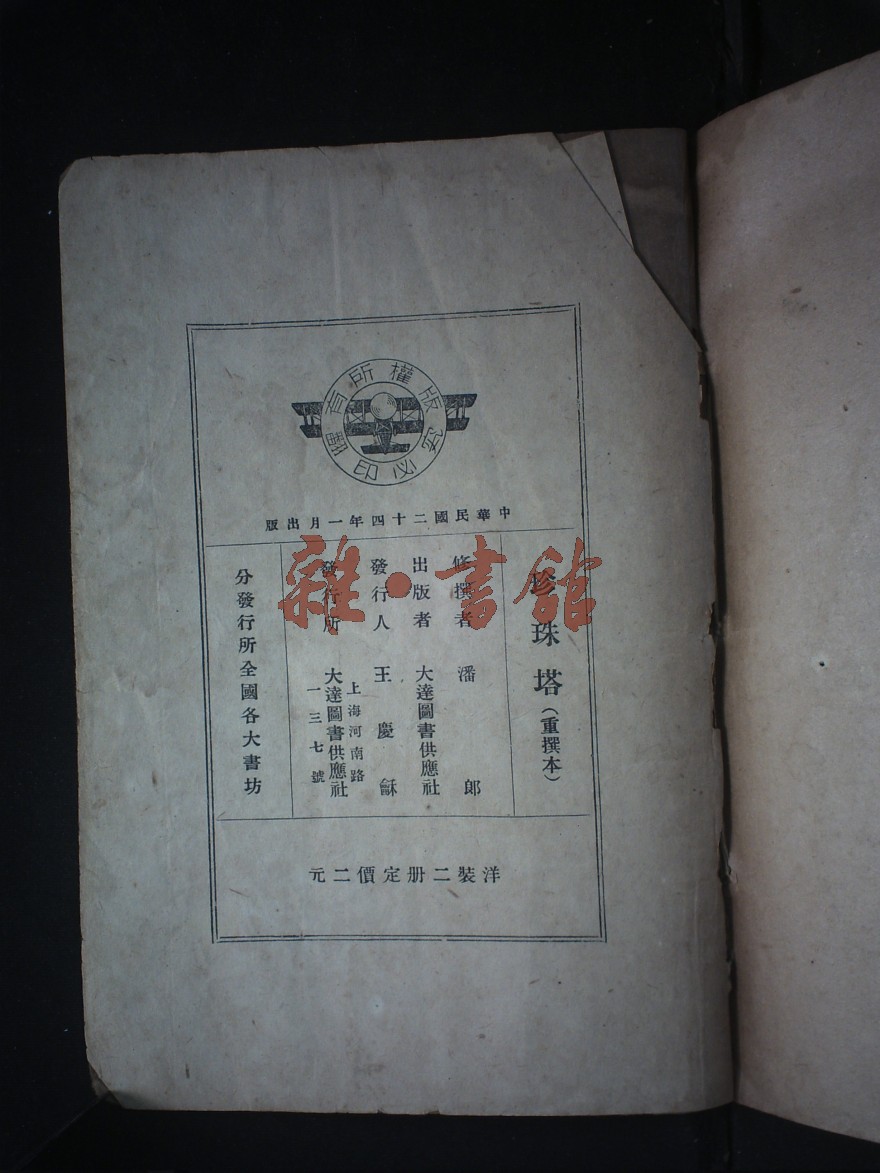 版權所有
翻印必究
中華民國二十四年一月出版
珍珠塔(重撰本)
修撰者 潘郎
出版者 大達圖書供應社
發行人 王慶龢
發行所 大達圖書供應社
上海河南路
一三七號
分發行所全國各大書坊
洋裝二册定價二元
雜·書館